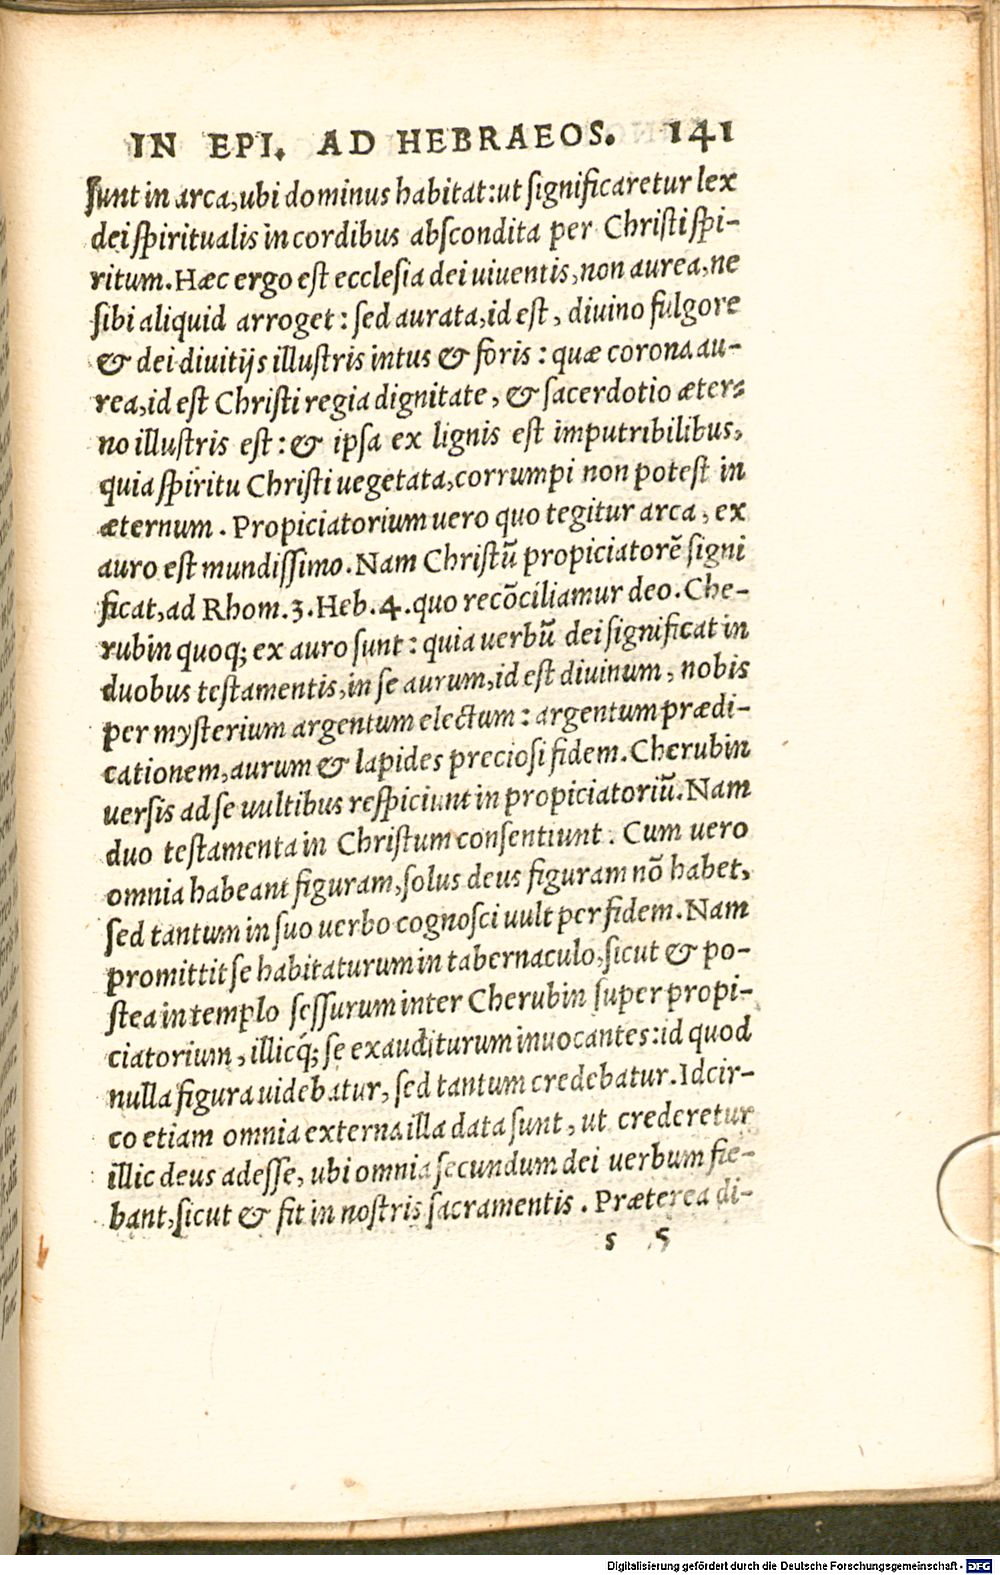 IN EPI. AD HEBRAEOS. 141
ſunt in arca, ubi dominus habitat: ut ſignificaretur lex
dei ſpiritualis in cordibus abſcondita per Chriſti ſpi-
ritum. Hæc ergo eſt eccleſia dei uiuentis, non aurea, ne
ſibi aliquid arroget: ſed aurata, id eſt, diuino fulgore
& dei diuitijs illuſtris intus & foris: quæ corona au-
rea, id eſt Chriſti regia dignitate, & ſacerdotio æter-
no illuſtris eſt: & ipſa ex lignis eſt imputribilibus,
quia ſpiritu Chriſti uegetata, corrumpi non poteſt in
æternum. Propiciatorium uero quo tegitur arca, ex
auro eſt mundiſſimo. Nam Chriſtũ propiciatorẽ ſigni
ficat, ad Rhom. 3. Heb. 4. quo recõciliamur deo. Che-
rubin quoq; ex auro ſunt: quia uerbũ dei ſignificat in
duobus teſtamentis, in ſe aurum, id eſt diuinum, nobis
per myſterium argentum electum: argentum prædi-
cationem, aurum & lapides precioſi fidem. Cherubin
uerſis ad ſe uultibus reſpiciunt in propiciatoriũ. Nam
duo teſtamenta in Chriſtum conſentiunt. Cum uero
omnia habeant figuram, ſolus deus figuram nõ habet,
ſed tantum in ſuo uerbo cognoſci uult per fidem. Nam
promittit ſe habitaturum in tabernaculo, ſicut & po-
ſtea in templo ſeſſurum inter Cherubin ſuper propi-
ciatorium, illicq́; ſe exauditurum inuocantes: id quod
nulla figura uidebatur, ſed tantum credebatur. Idcir-
co etiam omnia externa illa data ſunt, ut crederetur
illic deus adeſſe, ubi omnia ſecundum dei uerbum fie-
bant, ſicut & fit in noſtris ſacramentis. Præterea di-
s 5
Digitalisierung gefördert durch die Deutsche Forschungsgemeinschaft - DFG